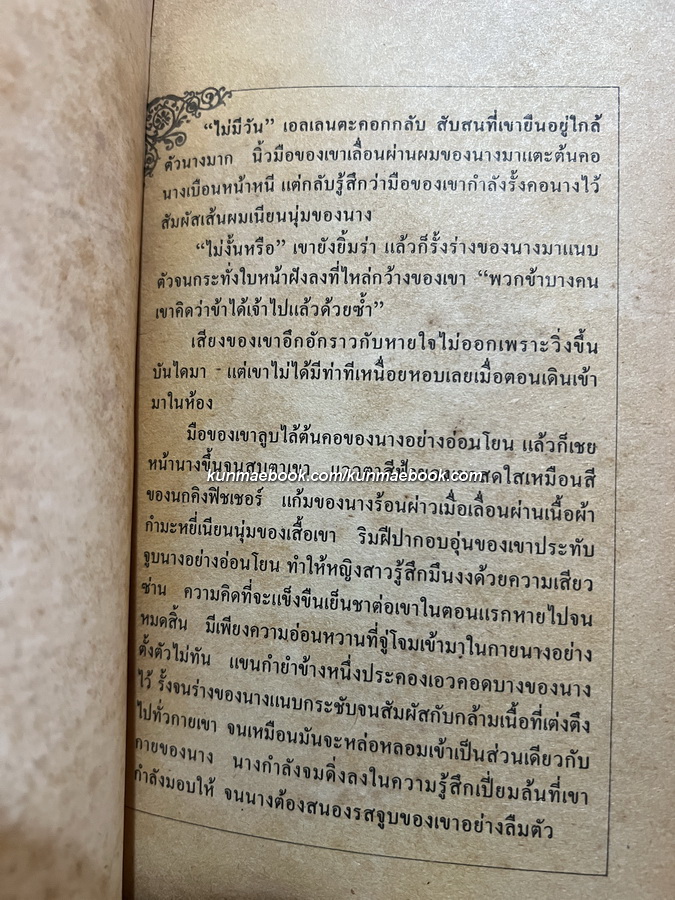 “ไม่มีวัน” เอลเลนตะคอกกลับ สับสนที่เขายืนอยู่ใกล้
ตัวนางมาก นิ้วมือของเขาเลื่อนผ่านผมของนางมาแตะต้นคอ
นางเบือนหน้าหนี แต่กลับรู้สึกว่ามือของเขากำลังรั้งคอนางไว้
สัมผัสเส้นผมเนียนนุ่มของนาง
“ไม่งั้นหรือ” เขายังยิ้มร่า แล้วก็รั้งร่างของนางมาแนบ
ตัวจนกระทั่งใบหน้าฝังลงที่ไหล่กว้างของเขา “พวกข้าบางคน
เขาคิดว่าข้าได้เจ้าไปแล้วด้วยซ้ำ”
เสียงของเขาอึกอักราวกับหายใจไม่ออกเพราะวิ่งขึ้น
บันไดมา - แต่เขาไม่ได้มีท่าทีเหนื่อยหอบเลยเมื่อตอนเดินเข้า
มาในห้อง
มือของเขาลูบไล้ต้นคอของนางอย่างอ่อนโยน แล้วก็เชย
หน้านางขึ้นจนสบตาเขา สดใสเหมือนสี
kunmaebook.com/kunmaebook.com
ของนกคิงฟิชเชอร์ แก้มของนางร้อนผ่าวเมื่อเลื่อนผ่านเนื้อผ้า
กำมะหยี่เนียนนุ่มของเสื้อเขา ริมฝีปากอบอุ่นของเขาประทับ
จูบนางอย่างอ่อนโยน ทำให้หญิงสาวรู้สึกมึนงงด้วยความเสียว
ซ่าน ความคิดที่จะแข็งขืนเย็นชาต่อเขาในตอนแรกหายไปจน
หมดสิ้น มีเพียงความอ่อนหวานที่จู่โจมเข้ามาในกายนางอย่าง
ตั้งตัวไม่ทัน แขนกำยำข้างหนึ่งประคองเอวคอดบางของนาง
ไว้ รั้งจนร่างของนางแนบกระชับจนสัมผัสกับกล้ามเนื้อที่เต่งตึง
ไปทั่วกายเขา จนเหมือนมันจะหล่อหลอมเข้าเป็นส่วนเดียวกับ
กายของนาง นางกำลังจมดิ่งลงในความรู้สึกเปี่ยมล้นที่เขา
กำลังมอบให้ จนนางต้องสนองรสจูบของเขาอย่างลืมตัว